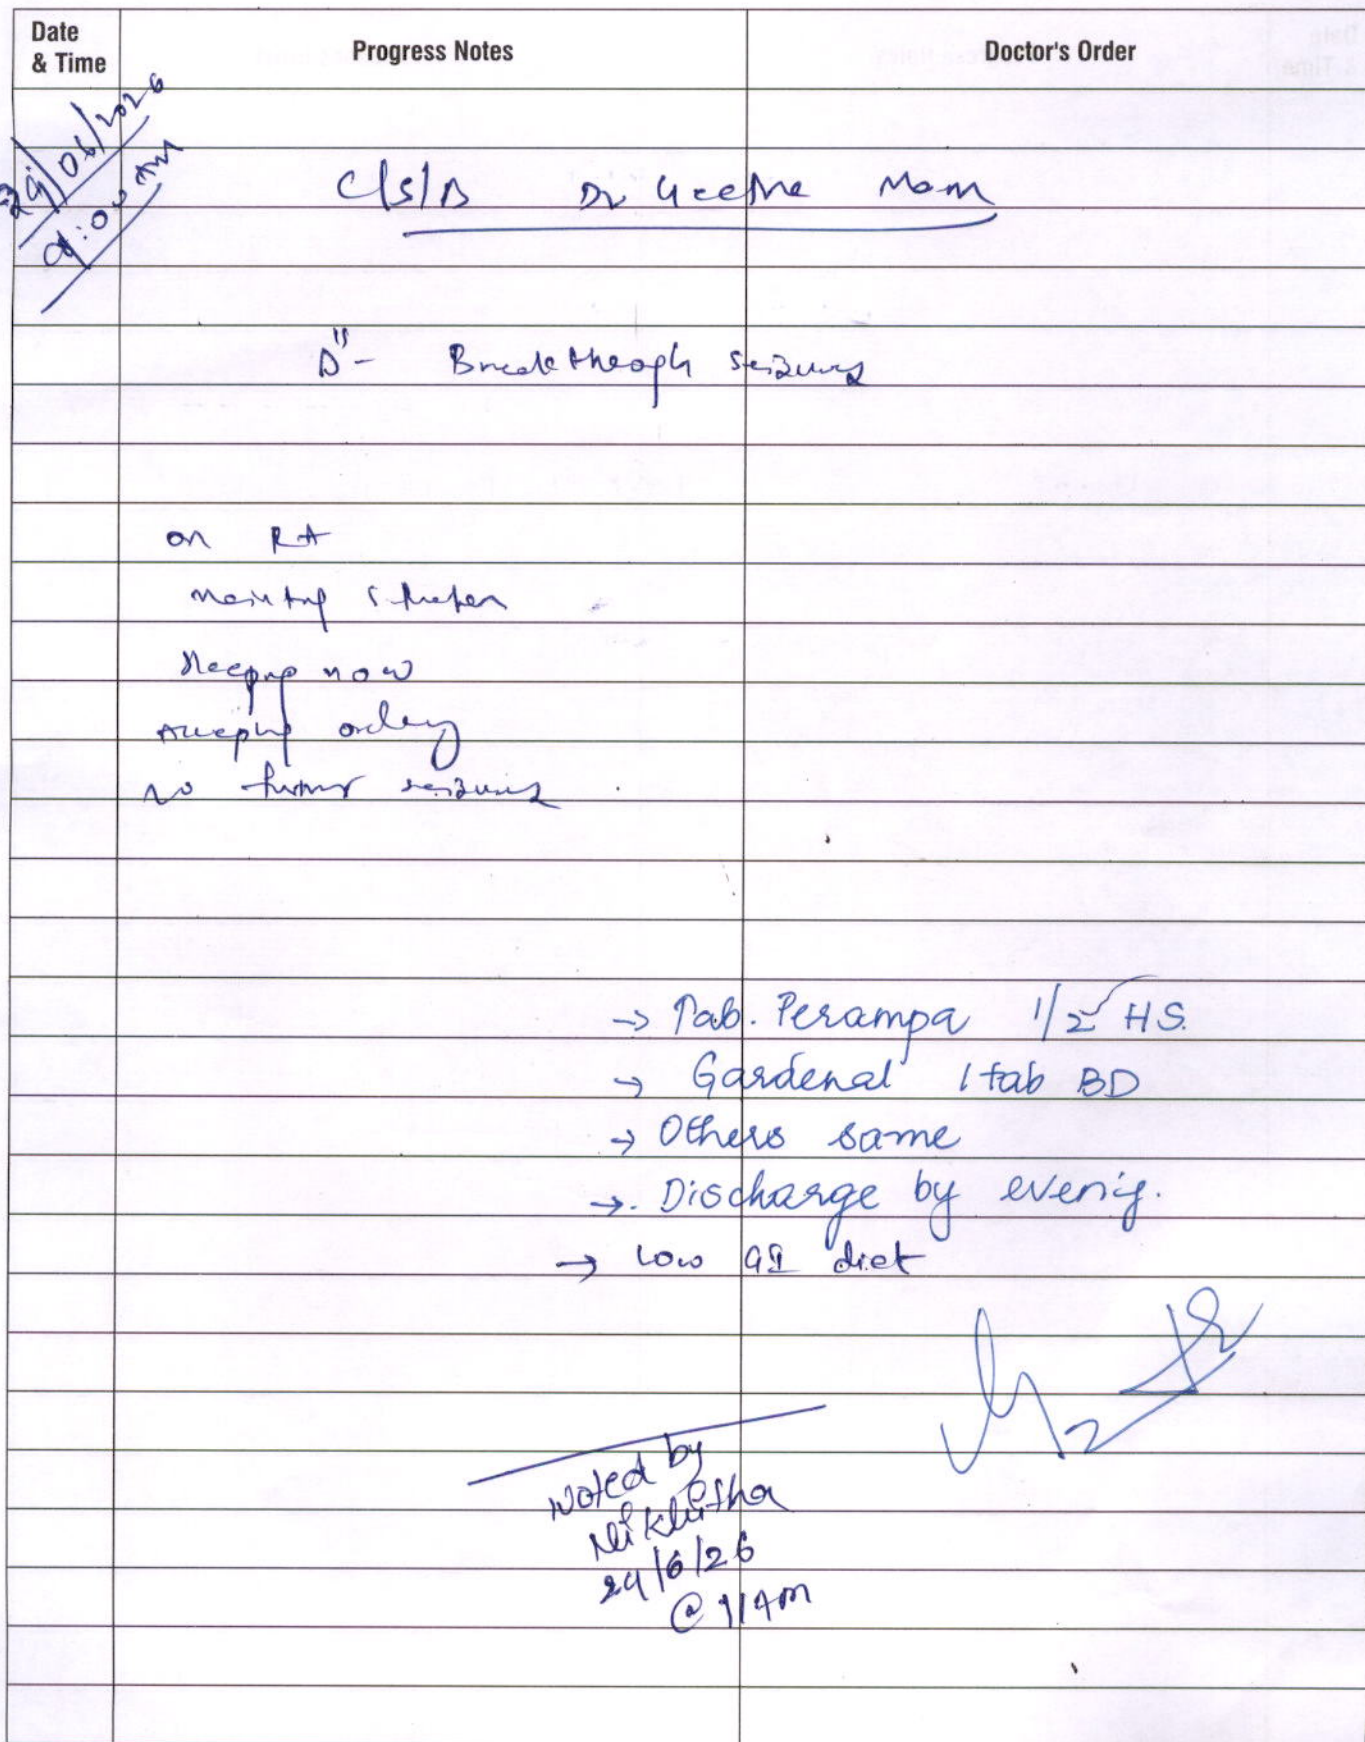 Date & Time
Progress Notes
Doctor's Order
24/06/2026
9:00 AM
C/S/B Dr Geetha Mam
D" - Breakthrough seizures
on RA
sleeping now
accepting orally
no further seizures
→ Tab. Perampa 1/2 HS.
→ Gardenal 1 tab BD
→ Others same
→. Discharge by evenig.
→ Low GI diet
Noted by
24/6/26
@ 11AM